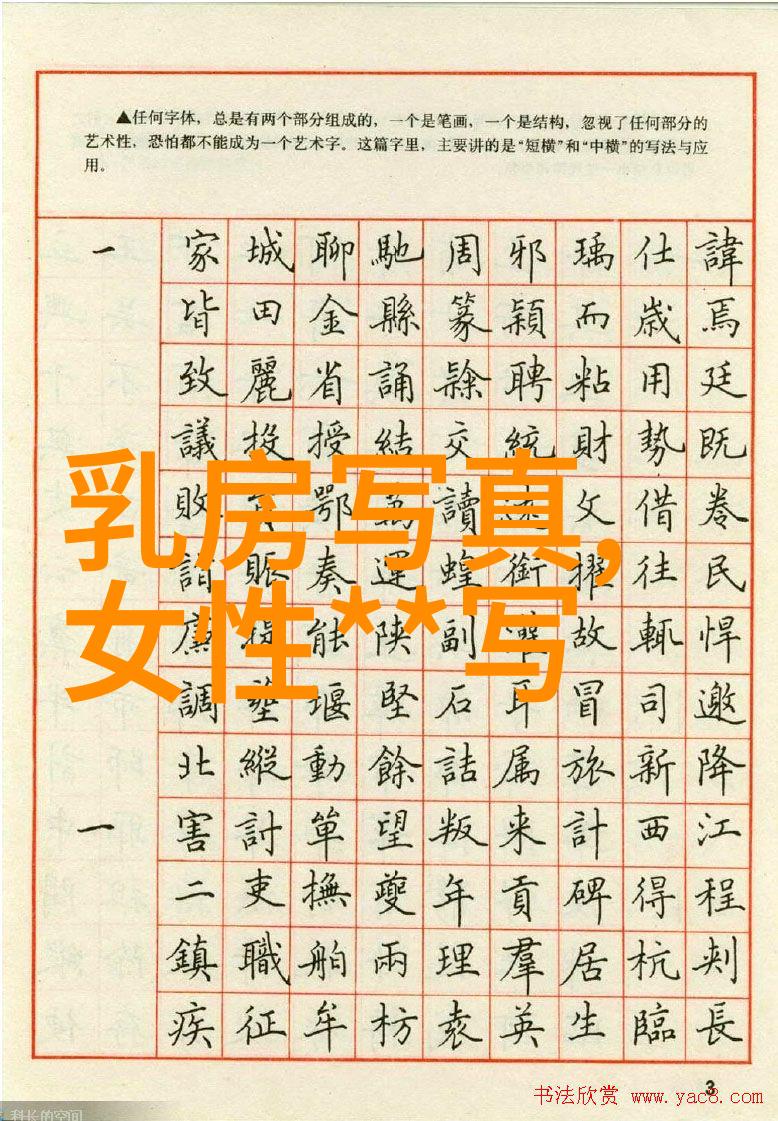 ▲任何字体，总是有两个部分组成的，一个是笔画，一个是结构，忽视了任何部分的
艺术性，恐怕都不能成为一个艺术字。这篇字里，主要讲的是“短横”和“中横”的写法与应
用。
一 家城聊馳周邪瑀仕諱
皆田金縣篆穎而歲焉
致麗省誦隸聘粘用廷
議投授結交統財勢既
敗鄂讀文借卷
諸賑奏運蝗銜擢往民
廉能陝副故輒悍
調堰堅石耳冒司邀
北縱動餘詰属旅新降
一 害討單望叛来計西江
二吏撫夔年貢碑得程
鎮職舶兩理羣居杭刺
疾征牟枋袁英生臨長
乳房写真,
女性**写
3
书法欣赏 www.yac8.com
科长的空间